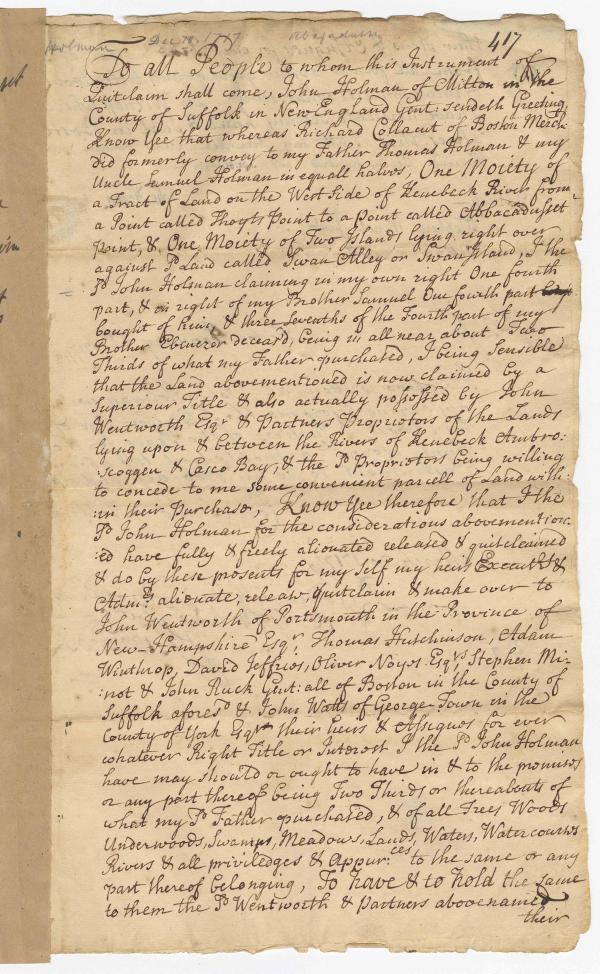 Holman Dec 78, 1717 Abagadusett
417
To all People to whom this Instrument of
Quitclaim shall come, John Holman of Milton in the
County of Suffolk in New England Gent: sendeth Greeting,
Know Yee that whereas Richard Collacut of Boston Merch:
did formerly convey to my Father Thomas Holman & my
Uncle Samuel Holman in equall halves, One Moiety of
a Tract of Land on the West side of Kenebeck River from
a Point called Thoyts Point to a point called Abbacadusset
point, & One Moiety of Two Islands lying right over
against sd. Land called Swan Alley or Swan Island, I the
sd. John Holman claiming in my own right One fourth
part, & in right of my Brother Samuel One fourth part
bought of him, & three sevenths of the Fourth part of my
Brother Ebenezer deceasd, being in all near about Two
Thirds of what my Father purchased, I being Sensible
that the Land abovementioned is now claimed by a
Superiour Title & also actually possessed by John
Wentworth Esqr. & Partners Proprietors of the Lands
lying upon & between the Rivers of Kenebeck Ambro:
:scoggen & Casco Bay, & the sd. Proprietors being willing
to concede to me some convenient parcell of Land with:
:in their Purchase, Know Yee therefore that I the
sd. John Holman for the considerations abovemention:
:ed have fully & freely alienated released & quitclaimed
& do by these presents for my self my heirs Executrs &
Admrs. alienate, release, quitclaim & make over to
John Wentworth of Portsmouth in the Province of
New-Hampshire Esqr. Thomas Hutchinson, Adam
Winthrop, David Jeffries, Oliver Noyes Esqrs, Stephen Mi:
:not & John Ruck Gent: all of Boston in the County of
Suffolk aforesd & John Watts of George-Town in the
County of York Esqr. their heirs & Assignes for ever
whatever Right Title or Interest I the sd. John Holman
have may should or ought to have in & to the premises
or any part thereof being Two Thirds or thereabouts of
what my sd. Father purchased, & of all Trees Woods
Underwoods, Swamps, Meadows, Lands, Waters, Watercourses
Rivers & all priviledges & Appurces. to the same or any
part thereof belonging, To have & to hold the same
to them the sd. Wentworth & Partners abovenamed
their